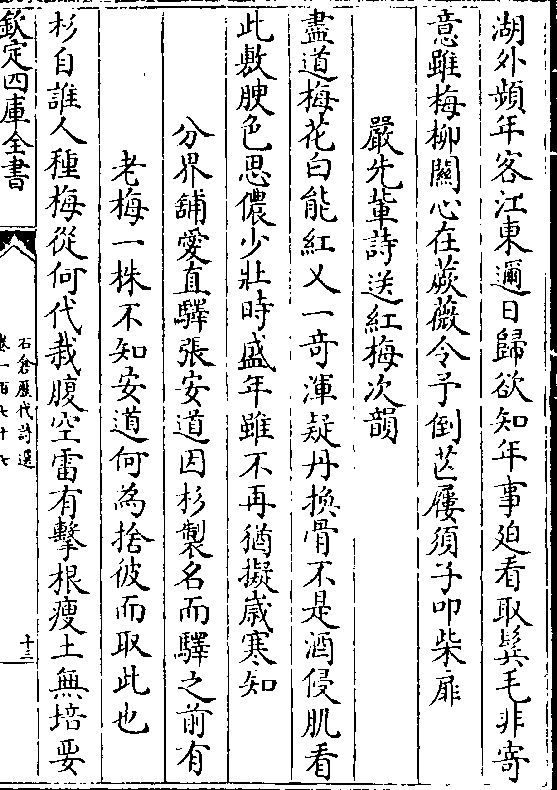 湖外頻年客江東邇日歸欲知年事迫看取鬂毛非寄
意雖梅柳關心在蕨薇令予倒芒屨須子叩柴扉
嚴先輩詩送紅梅次韻
盡道梅花白能紅又一竒渾疑丹換骨不是酒侵肌看
此敷腴色思儂少壯時盛年雖不再猶擬嵗寒知
分界舖愛直驛張安道因杉製名而驛之前有
老梅一株不知安道何為捨彼而取此也
杉自誰人種梅從何代栽腹空雷有擊根瘦土無培要
欽定四庫全書
石倉歷代詩選
卷一百七十七
十三